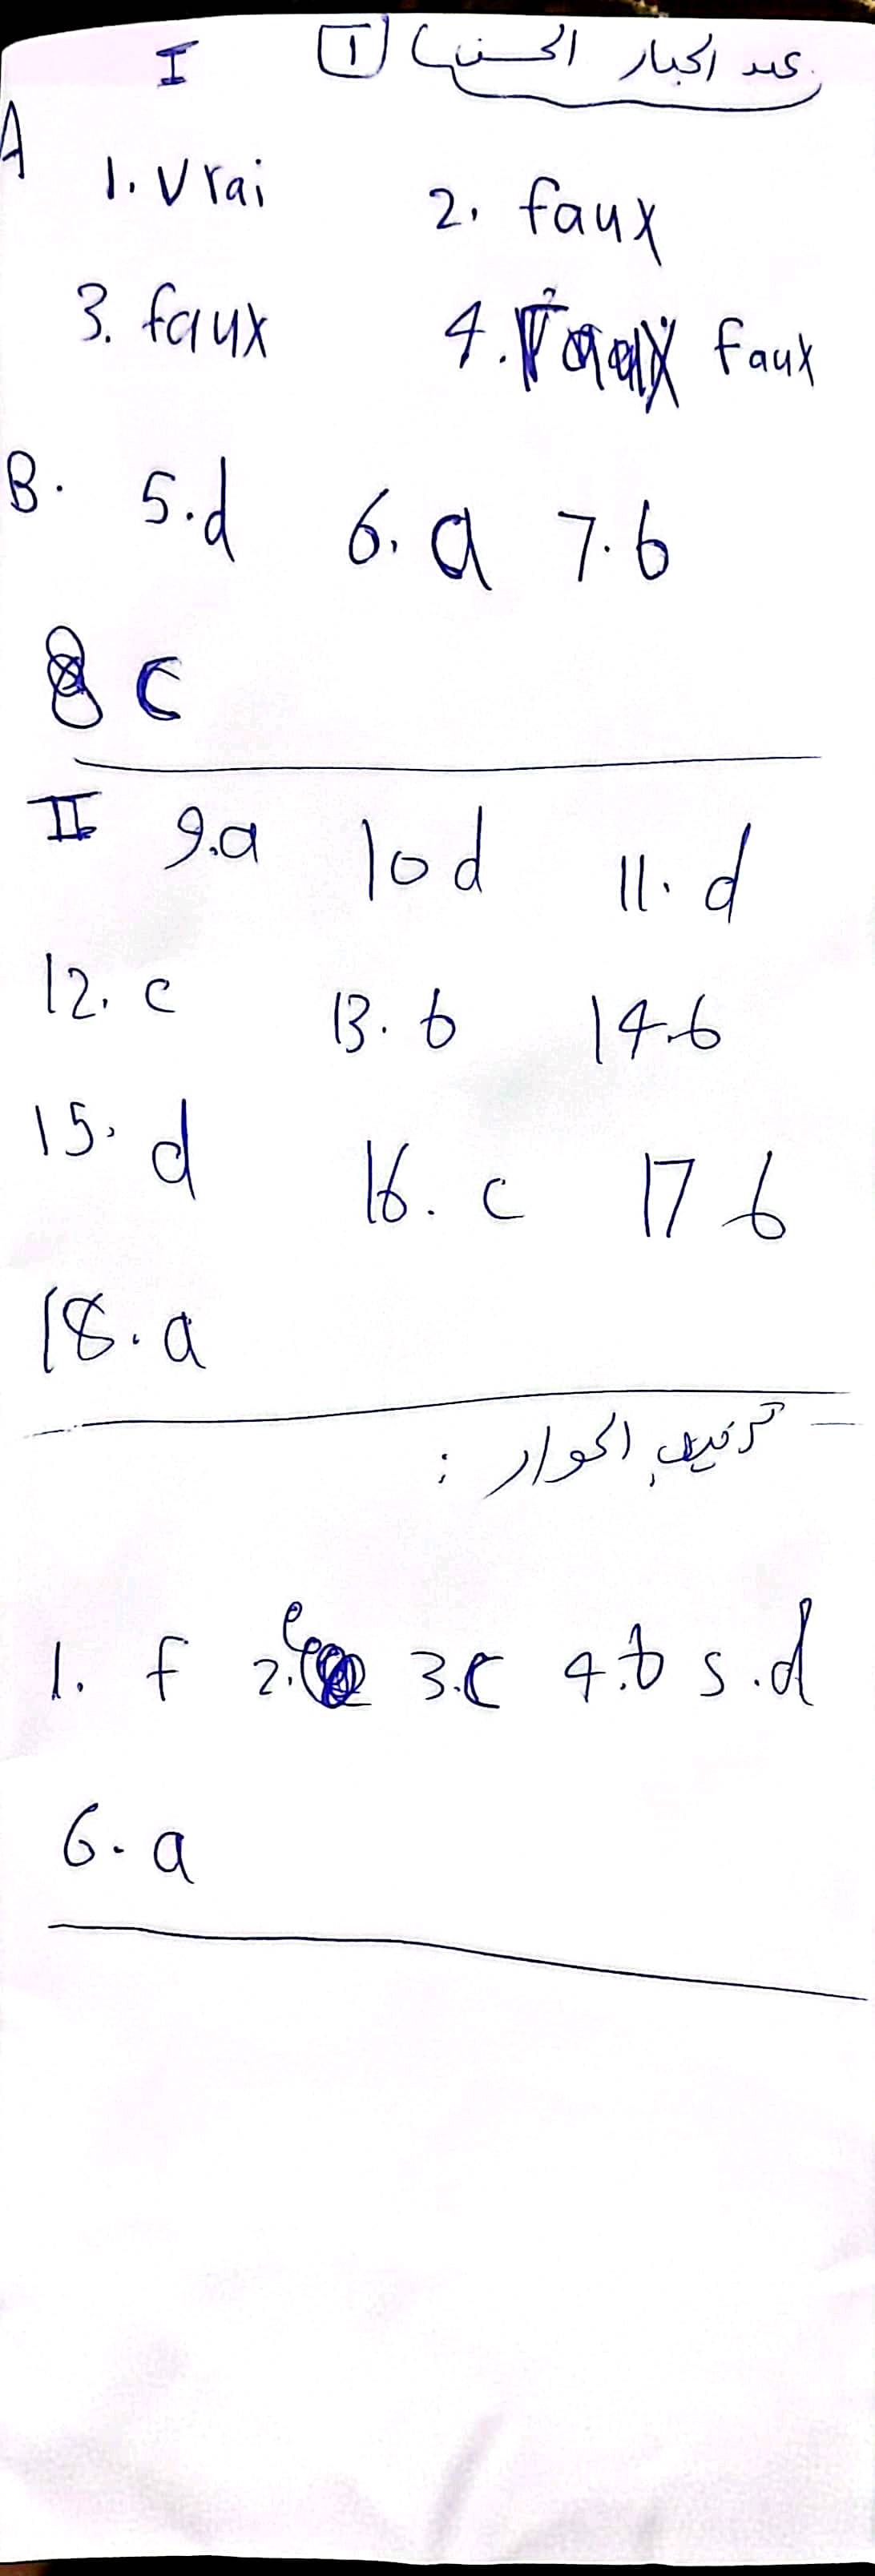 عبد الجبار الحسني 1
I
A
1. Vrai 2. faux
3. faux 4. Faux
B. 5.d 6. a 7.b
8 c
II 9.a 10 d 11. d
12. c 13. b 14.b
15. d 16. c 17 b
18. a
ترتيب الحوار :
1. f 2. e 3.c 4.b 5.d
6. a